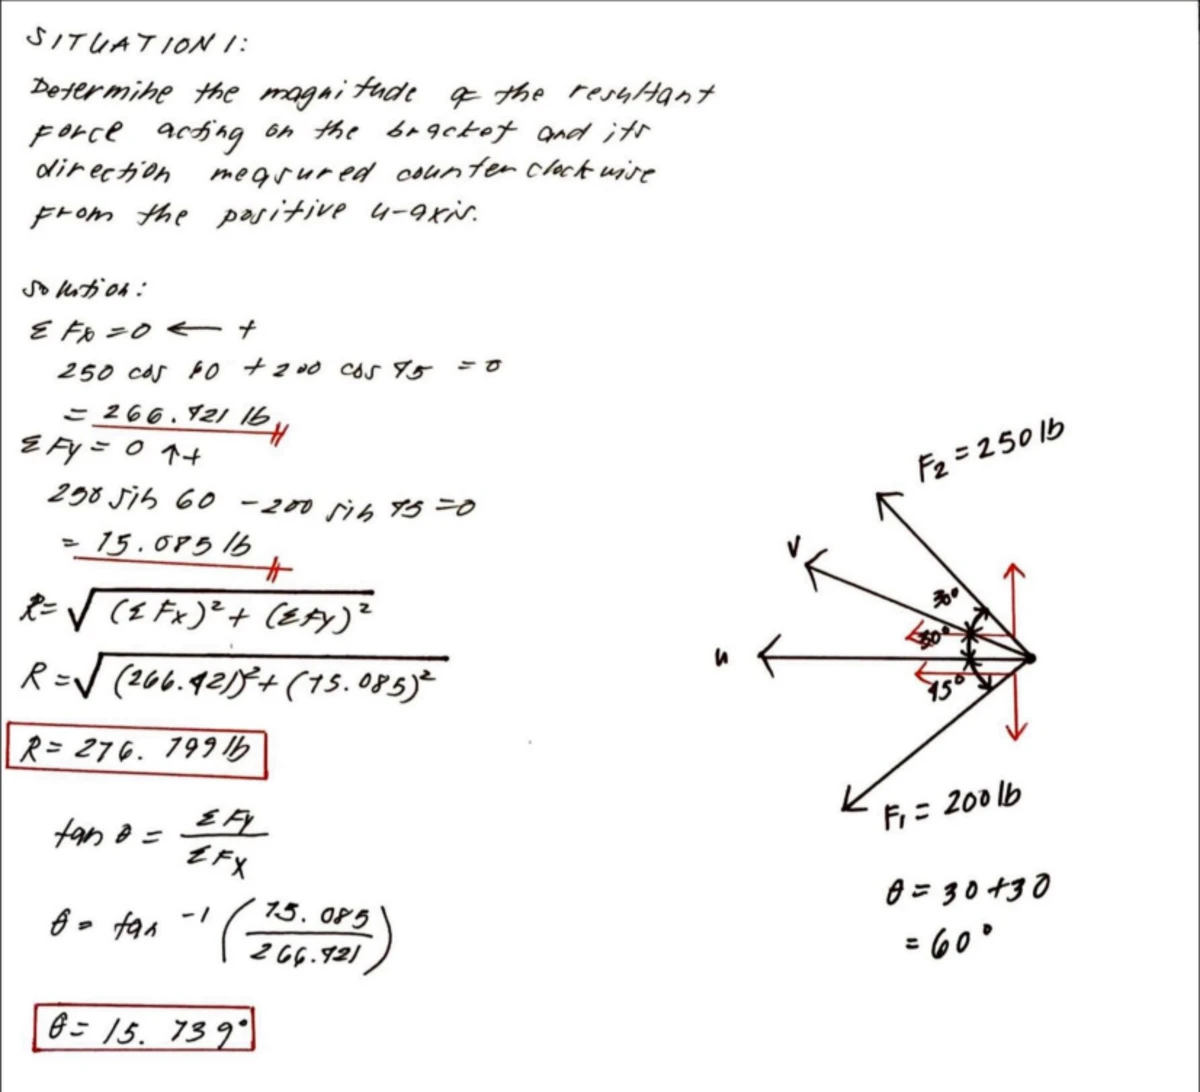 SITUATION 1:
Determine the magnitude of the resultant
force acting on the bracket and its
direction measured counter clockwise
from the positive u-axis.
Solution:
Σ Fx = 0 ← +
250 cos 60 + 200 cos 45 = 0
= 266.421 lb
Σ Fy = 0 ↑+
250 sin 60 - 200 sin 45 = 0
= 75.085 lb
R = √(ΣFx)² + (ΣFy)²
R = √(266.421)² + (75.085)²
R = 276.799 lb
tan θ = ΣFy / ΣFx
θ = tan -1 (75.085 / 266.421)
θ = 15.739°
F₂ = 250 lb
v
30°
30°
u
45°
F₁ = 200 lb
θ = 30 + 30
= 60°